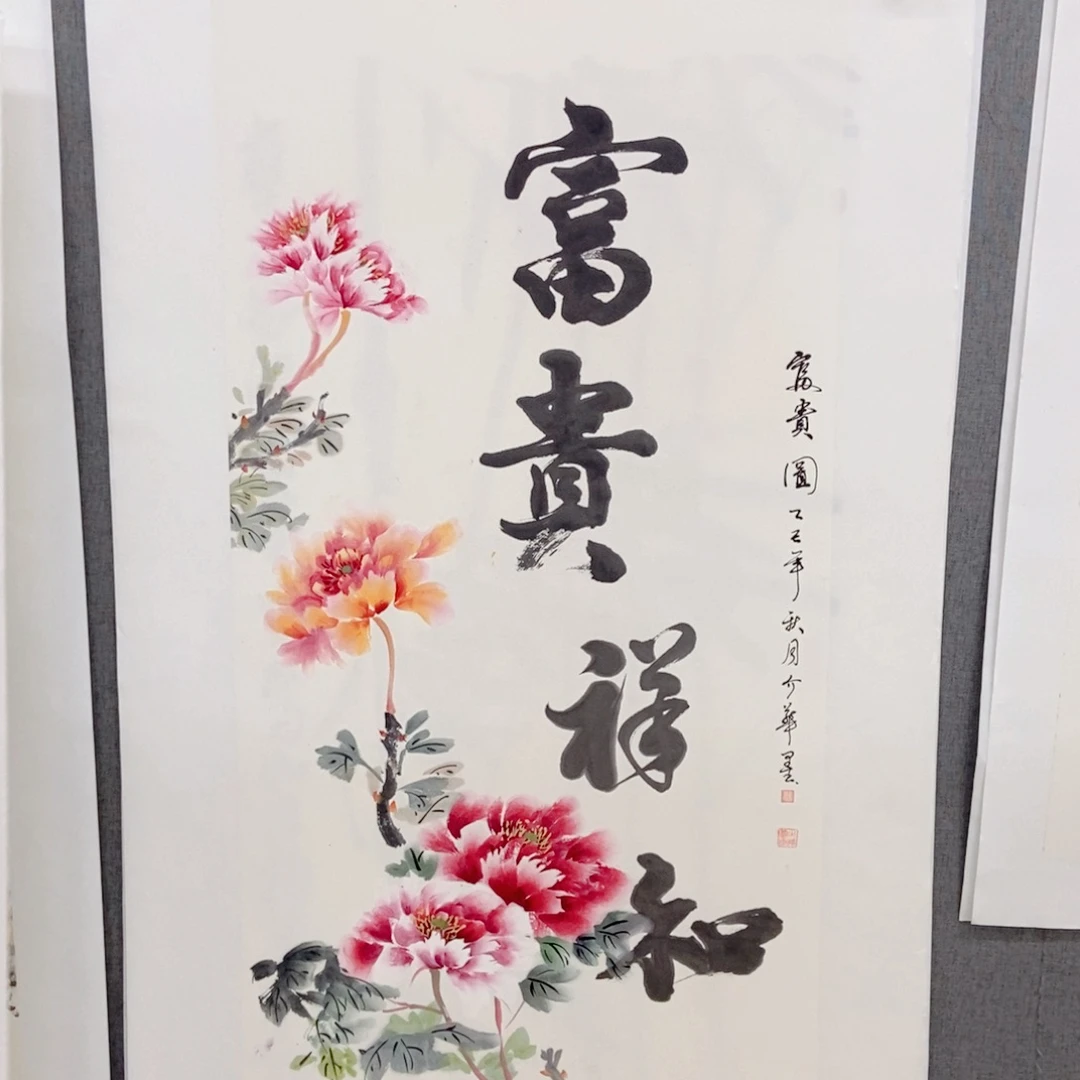 富貴祥和
富貴圖乙巳年秋月介華墨